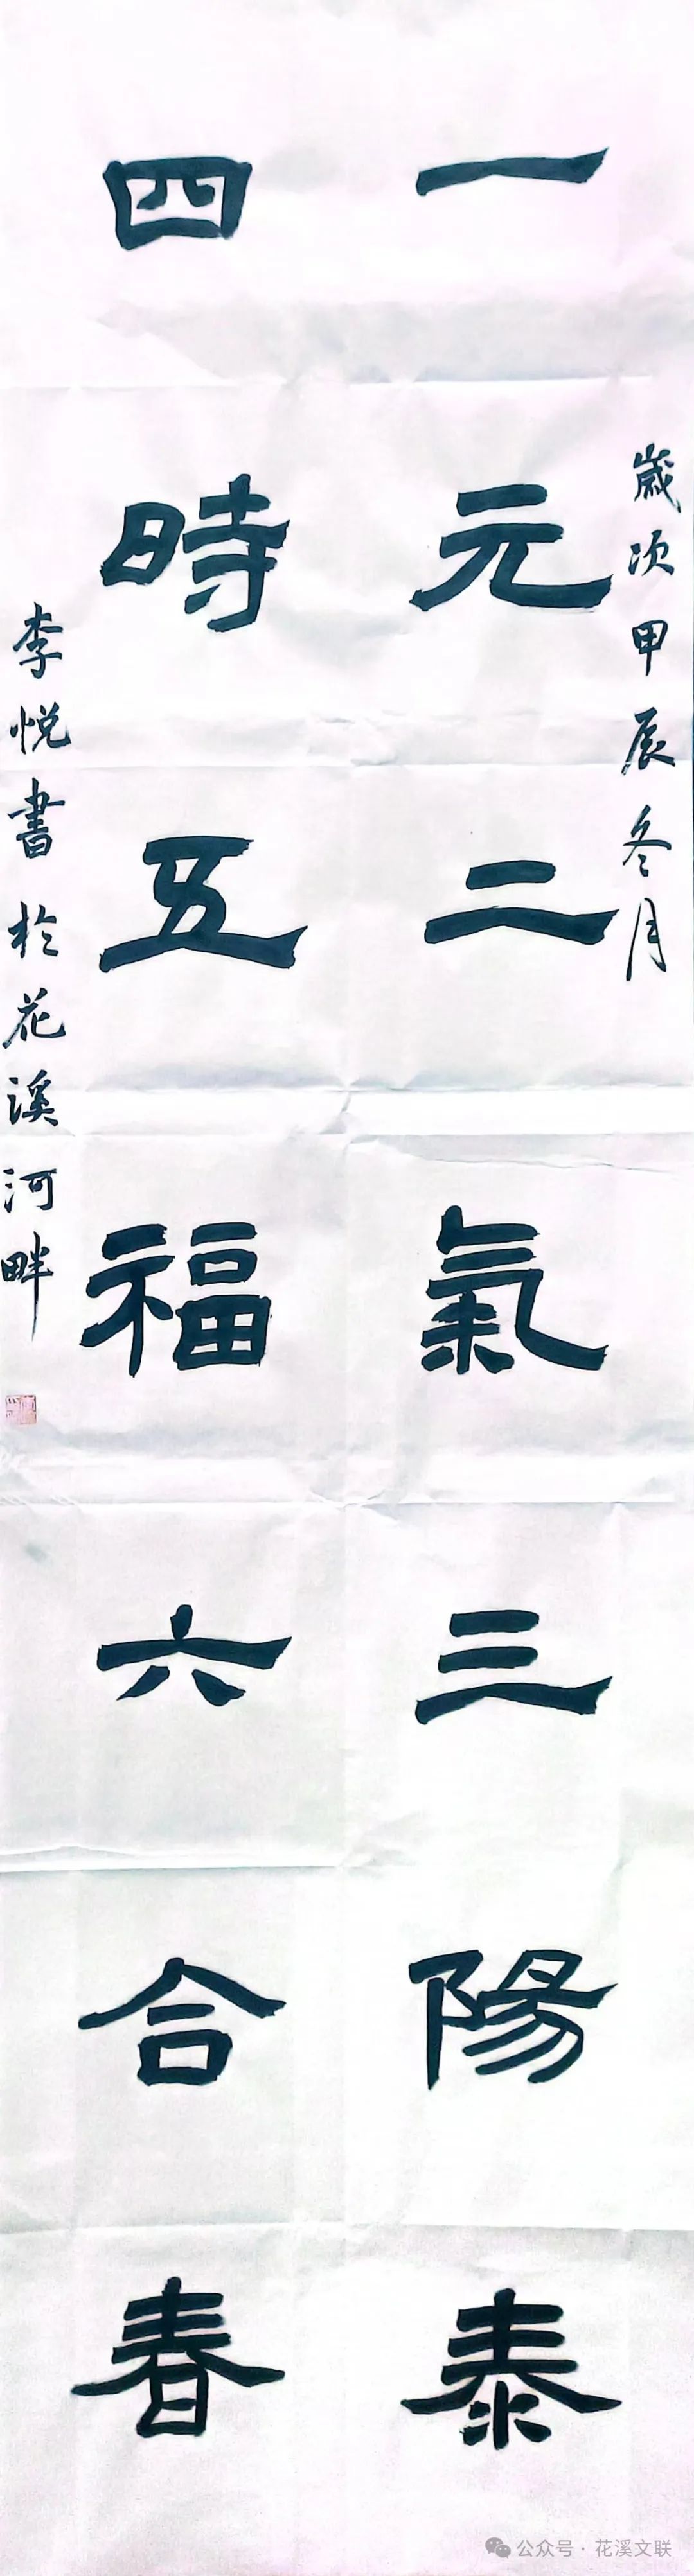 歲次甲辰冬月
一元二氣三陽泰
四時五福六合春
李悦書於花溪河畔
公众号·花溪文联